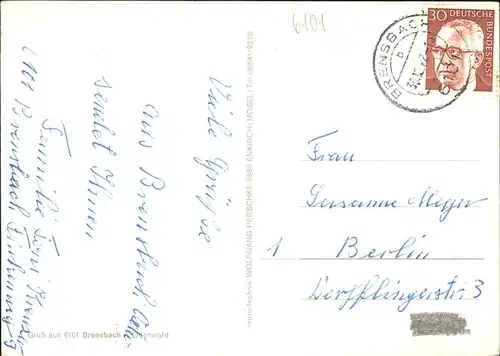 6101
30 DEUTSCHE
BUNDESPOST
BRENSBACH
b
6101
Viele Grüße
aus Brensbach
sendet Ihnen
Familie
6101 Brensbach
Frau
Susanne Meyer
1 Berlin
Derfflingerstr. 3
repro-technik WOLFGANG PERSCHKE 5585 ENKIRCH (MOSEL) Tel. 06541/9220
Gruß aus 6101 Brensbach Odenwald